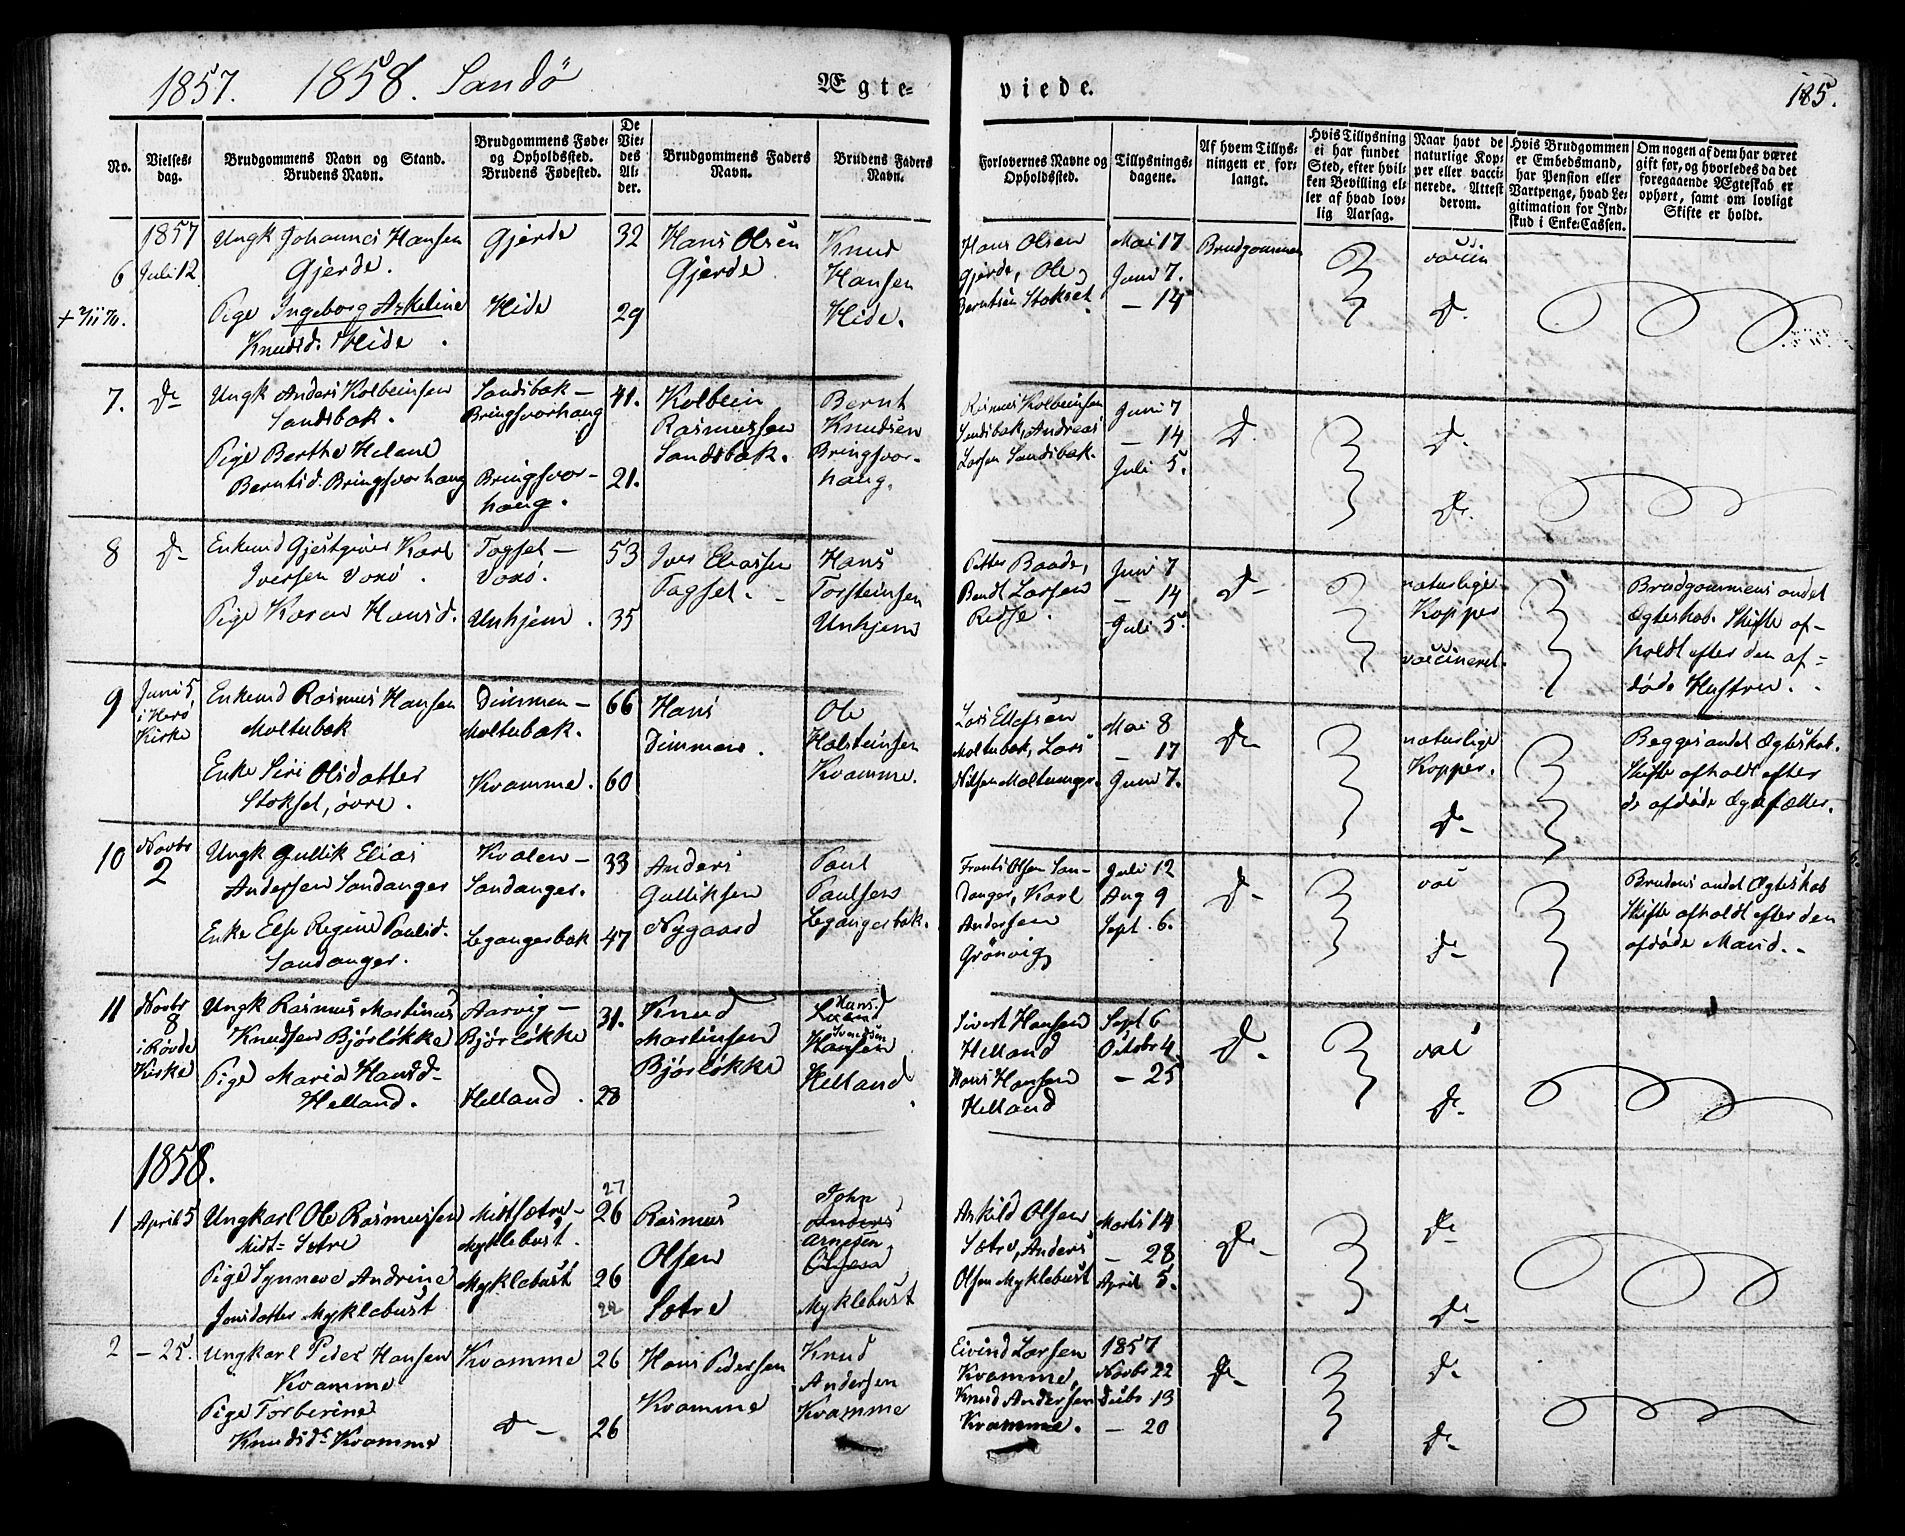 1857. 1858. Sandö
Ægte-
viede.
185.
No.
Vielses-
dag.
Brudgommens Navn og Stand.
Brudens Navn.
Brudgommens Føde-
og Opholdssted.
Brudens Fødested.
De
Vie-
des
Al-
der.
Brudgommens Faders
Navn.
Brudens Faders
Navn.
Forlovernes Navne og
Opholdssted.
Tillysnings-
dagene.
Af hvem Tillys-
ningen er for-
langt.
Hvis Tillysning
ei har fundet
Sted, efter hvil-
ken Bevilling el-
ler af hvad lov-
lig Aarsag.
Naar havt de
naturlige Kop-
per eller vacci-
nerede. Attest
derom.
Hvis Brudgommen
er Embedsmand,
har Pension eller
Vartpenge, hvad Le-
gitimation for Ind-
skud i Enke-Cassen.
Om nogen af dem har været
gift før, og hvorledes da det
foregaaende Ægteskab er
ophørt, samt om lovligt
Skifte er holdt.
1857
6 Juli 12
Ungk Johannes Hansen
Gjerde.
Pige Ingeborg Askeline
Knudsd. Hide.
Gjerde
Hide
32
29
Hans Olsen
Gjerde
Knud
Hansen
Hide.
Hans Olsen
Gjerde, Ole
Berntsen Stokset.
Mai 17
Juni 7.
— 14
Brudgommen
vaccin
D.
7. Do
Ungk Anders Kolbeinsen
Sandsbak.
Pige Berthe Helene
Berntsd. Bringsvorhaug
Sandsbak —
Bringsvorhaug
Bringsvor-
haug.
41.
21.
Kolbein
Rasmussen
Sandsbak.
Bernt
Knudsen
Bringsvor-
haug.
Rasmus Kolbeinsen
Sandsbak, Andreas
Larsen Sandsbak.
Juni 7
— 14
Juli 5.
D.
D.
D.
8 D-
Enkemd Gjestgiver Karl
Iversen Voxö.
Pige Karen Hansd.
Fogset —
Voxö.
Unhjem.
53
35
Iver Eliassen
Fogset.
Hans
Torsteinsen
Unhjem
Petter Baade,
Bendt Larsen
Redse.
Juni 7
— 14
Juli 5.
D-
naturlige
Kopper
vaccineret.
Brudgommens andet
Ægteskab. Skifte af-
holdt efter den af-
døde Hustru.
9 Juni 5
i Herö
Kirke
Enkemd Rasmus Hansen
Moltubak
Enke Siri Olsdatter
Stokset, övre.
Dimmen —
Moltubak.
Kvamme.
66
60
Hans
Dimmen.
Ole
Holsteinsen
Kvamme.
Lars Ellefsen
Moltubak, Lars
Nilsen Moltumyr.
Mai 8
— 17
Juni 7.
D-
naturlige
Kopper.
D-
Begges andet Ægteskab.
Skifte afholdt efter
de afdøde Ægtefæller.
10 Novbr
2
Ungk Gullik Elias
Andersen Sandanger
Enke Else Regine Paulsd.
Sandanger.
Kvalen —
Sandanger.
Leganger bak
33
47
Anders
Gulliksen
Nygaard
Paul
Paulsen
Leganger bak.
Frants Olsen San-
danger, Karl
Andersen
Grönvig
Juli 12
Aug 9
Sept. 6.
D-
vac
D-
Brudens andet Ægteskab
Skifte afholdt efter den
afdøde Mand.
11 Novbr
8
i Røvde
Kirke
Ungk Rasmus Martinus
Knudsen Bjørløkke
Pige Maria Hansd-
Helland.
Aarvig —
Bjørløkke
Helland.
31.
28
Knud
Martinsen
Bjørløkke
Hans
Hansen
Helland
Sivert Hansen
Helland
Hans Hansen
Helland
Sept 6
Octobr 4
— 25
D-
vac
D-
1858.
1 April 5
Ungkarl Ole Rasmussen
Midt-Sætre
Pige Synneve Andrine
Jonsdatter Myklebust
Midtsætre-
Myklebust.
Myklebust
27
26
26
22
Rasmus
Olsen
Sætre
John
Anders
Arnesen
Myklebust
Askild Olsen
Sætre, Anders
Olsen Myklebust
Marts 14
— 28
April 5.
D-
D-
D-
2 — 25.
Ungkarl Peder Hansen
Kvamme
Pige Torberine
Knudsdr Kvamme
Kvamme
D-
26
26
Hans Pedersen
Kvamme
Knud
Andersen
Kvamme
Eivind Larsen
Kvamme,
Knud Andersen
Kvamme.
1857
Novbr 22
Decbr 13
— 20
D-
D-
D-